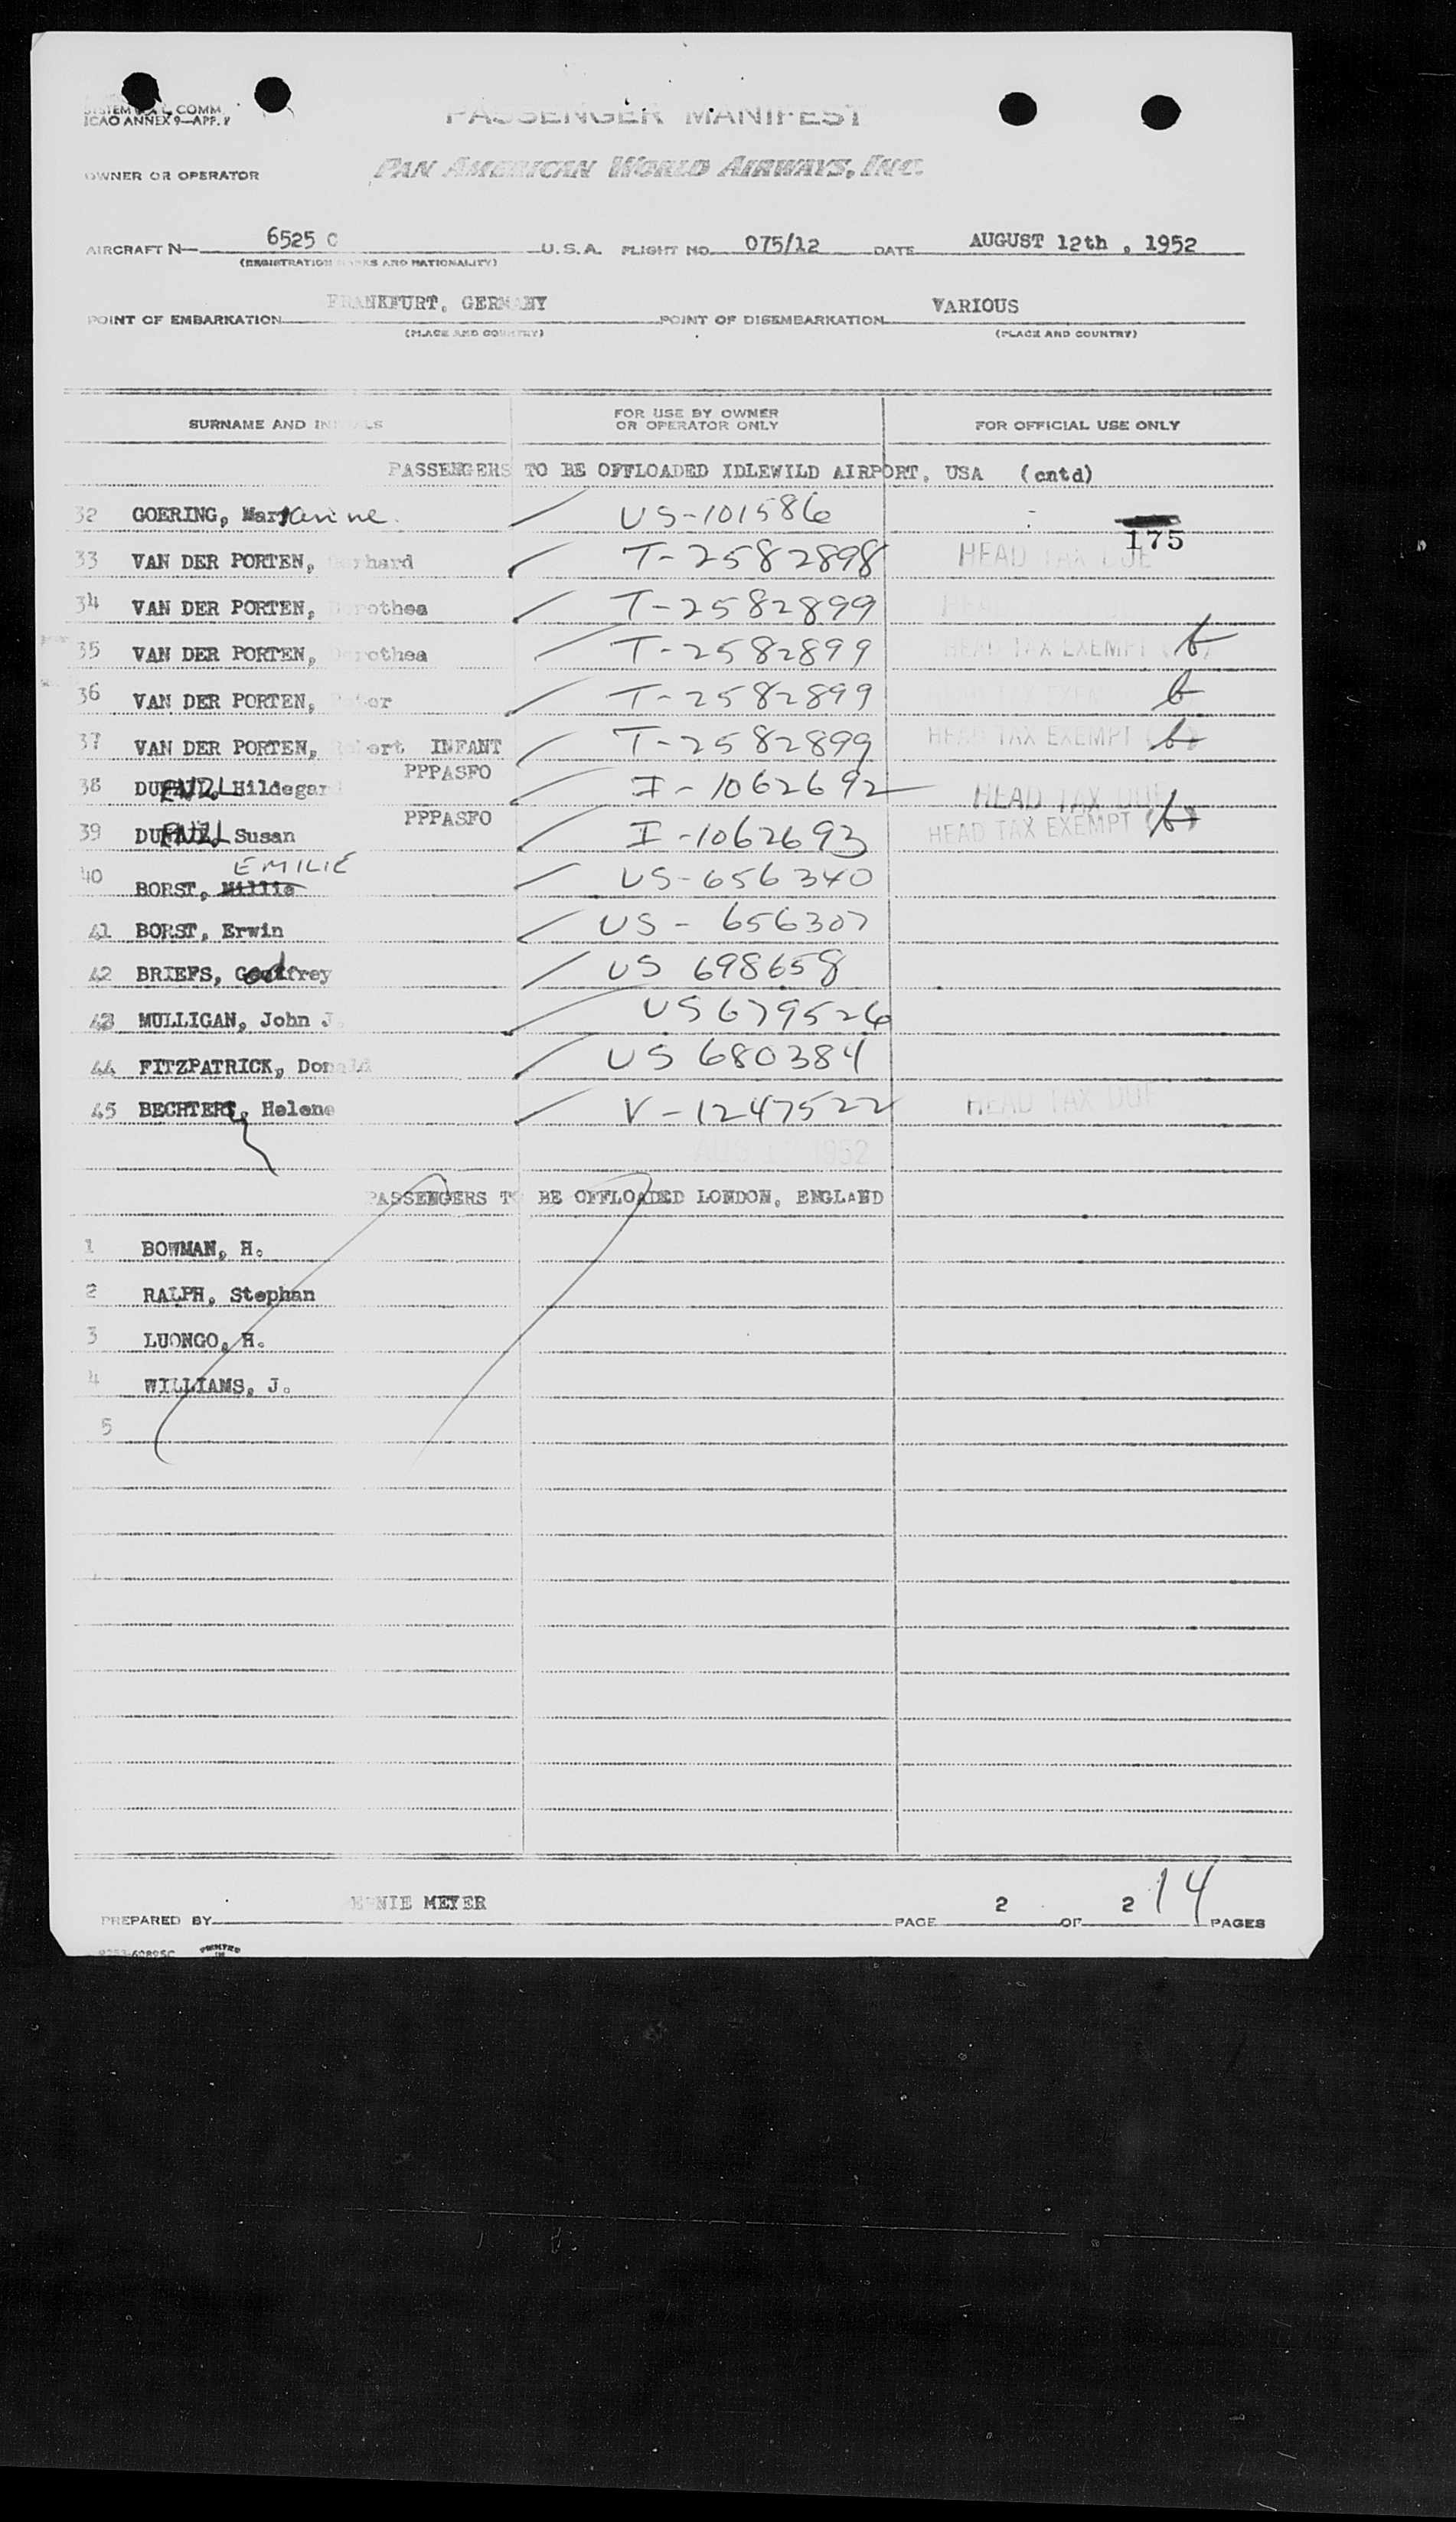 ICAO ANNEX 9—APP.
PASSENGER MANIFEST
OWNER OR OPERATOR PAN AMERICAN WORLD AIRWAYS, INC.
AIRCRAFT N— 6525 C U.S.A. FLIGHT NO. 075/12 DATE AUGUST 12th , 1952
(REGISTRATION MARKS AND NATIONALITY)
POINT OF EMBARKATION FRANKFURT, GERMANY POINT OF DISEMBARKATION VARIOUS
(PLACE AND COUNTRY) (PLACE AND COUNTRY)
SURNAME AND INITIALS FOR USE BY OWNER OR OPERATOR ONLY FOR OFFICIAL USE ONLY
PASSENGERS TO BE OFFLOADED IDLEWILD AIRPORT, USA (cntd)
32 GOERING, Marianine US-101586
175
33 VAN DER PORTEN, Gerhard T-2582898 HEAD TAX DUE
34 VAN DER PORTEN, Dorothea T-2582899 HEAD
35 VAN DER PORTEN, Dorothea T-2582899 HEAD TAX EXEMPT b
36 VAN DER PORTEN, Peter T-2582899 HEAD TAX EXEMPT b
37 VAN DER PORTEN, Robert INFANT T-2582899 HEAD TAX EXEMPT b
38 Hildegard PPPASFO I-1062692 HEAD TAX DUE
39 Susan PPPASFO I-1062693 HEAD TAX EXEMPT b
EMILIE
40 BORST, Millie US-656340
41 BORST, Erwin US - 656307
42 BRIEFS, Godfrey US 698658
43 MULLIGAN, John J. US 679526
44 FITZPATRICK, Donald US 680384
45 BECHTERT, Helene V-1247522 HEAD TAX DUE
AUG 1952
PASSENGERS TO BE OFFLOADED LONDON, ENGLAND
1 BOWMAN, H.
2 RALPH, Stephan
3 LUONGO, H.
4 WILLIAMS, J.
5
PREPARED BY ERNIE MEYER PAGE 2 OF 2 14 PAGES
PRINTED IN